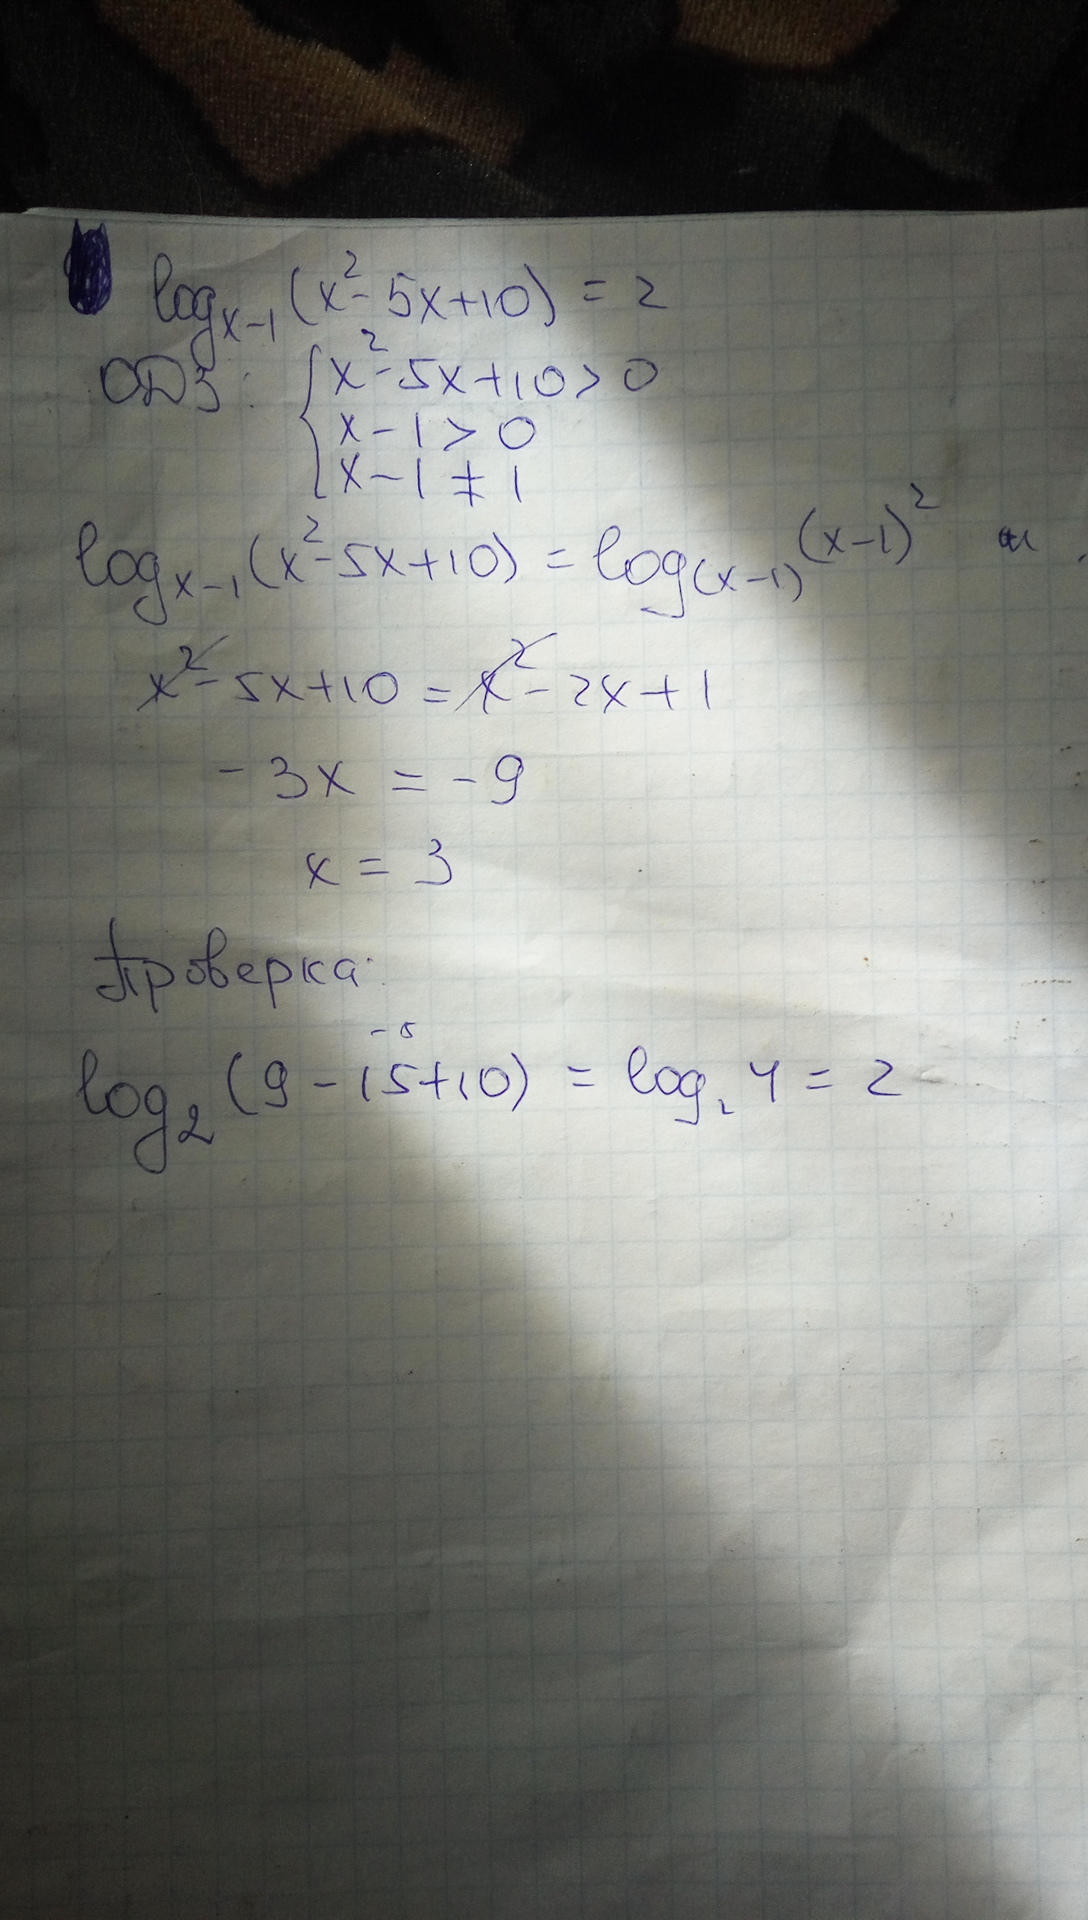 log_{x-1}(x²-5x+10) = 2
ОДЗ: { x²-5x+10>0
x-1>0
x-1≠1
log_{x-1}(x²-5x+10) = log_{(x-1)}(x-1)²
x²-5x+10 = x²-2x+1
-3x = -9
x = 3
Проверка:
-5
log₂(9-15+10) = log₂4 = 2